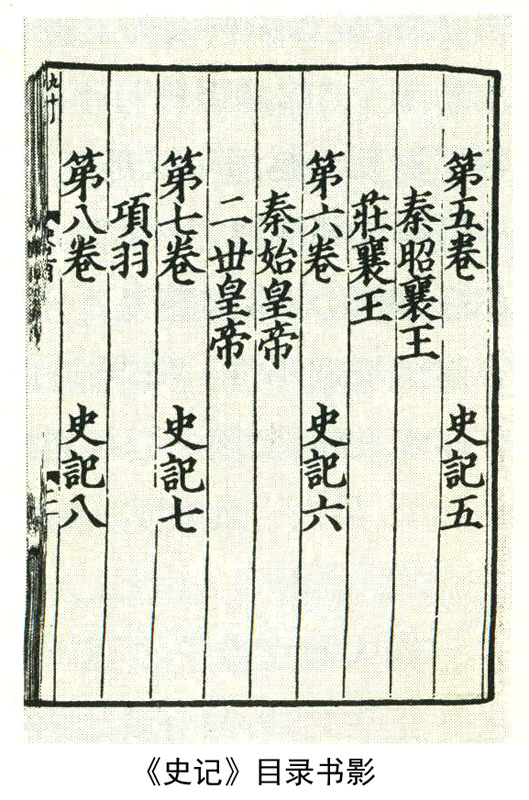 第五卷 史記五
秦昭襄王
莊襄王
第六卷 史記六
秦始皇帝
二世皇帝
第七卷 史記七
項羽
第八卷 史記八
九十
二
《史记》目录书影